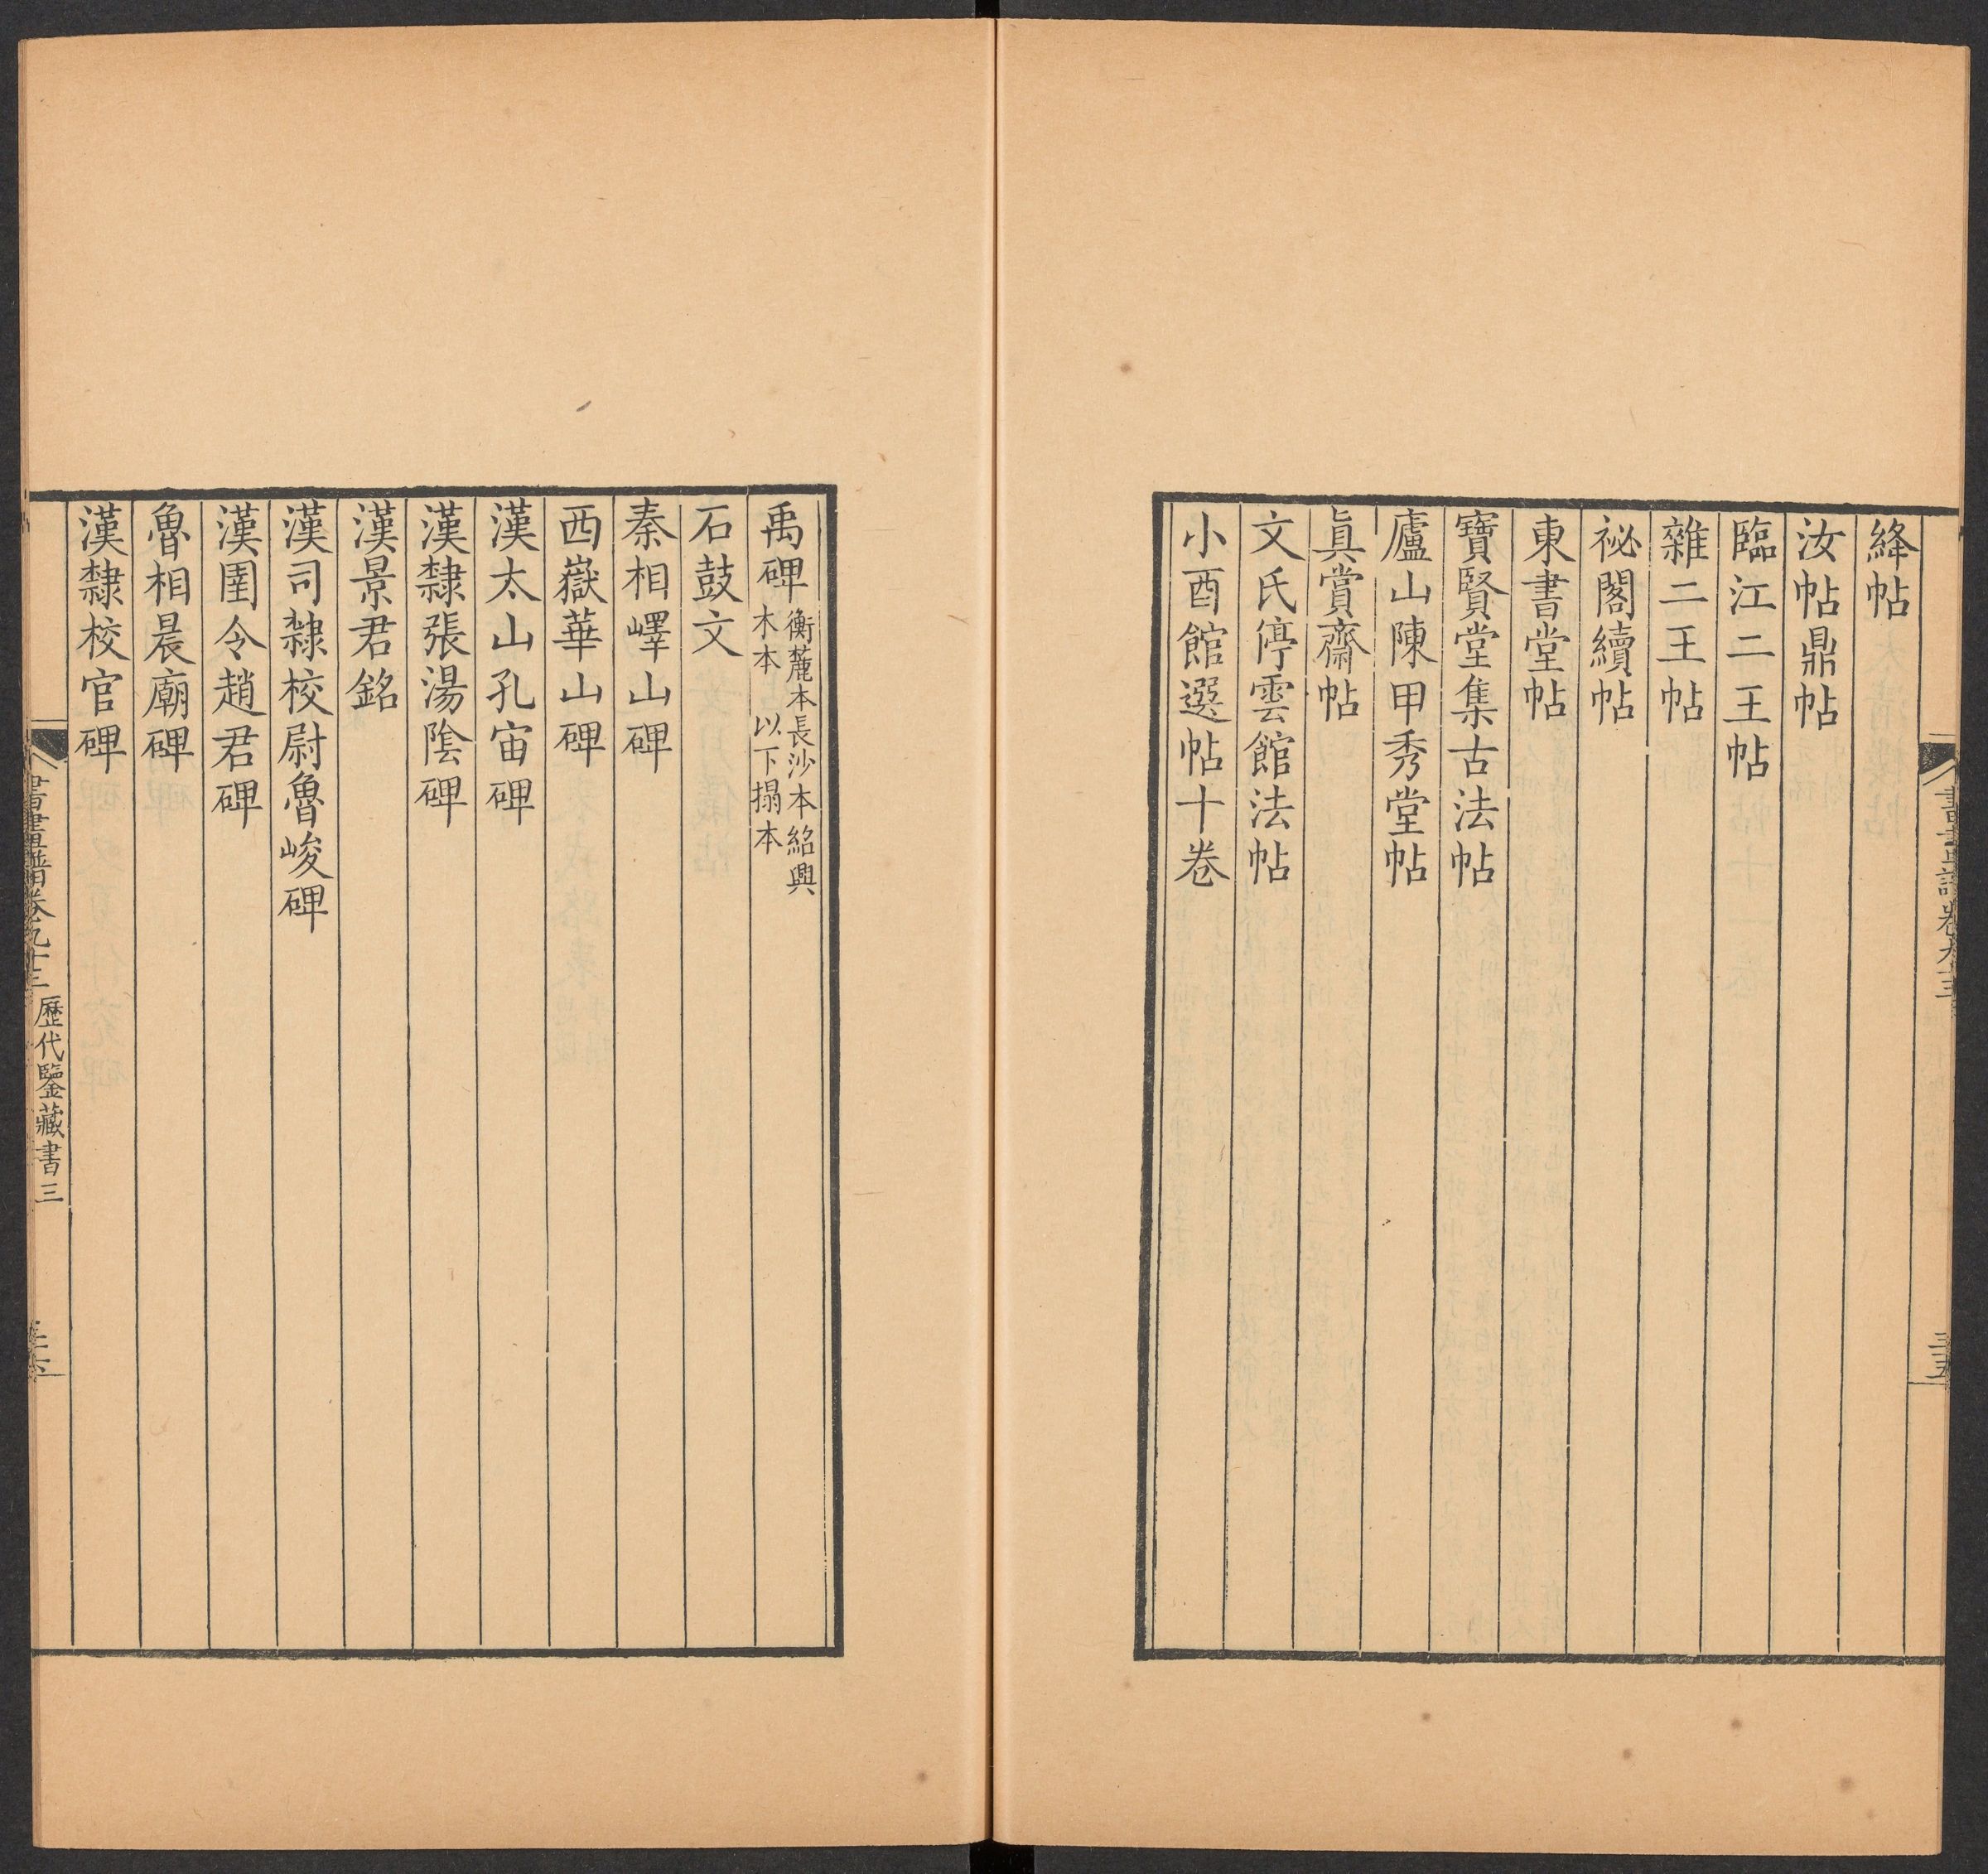 絳帖
汝帖鼎帖
臨江二王帖
雜二王帖
祕閣續帖
東書堂帖
寶賢堂集古法帖
廬山陳甲秀堂帖
眞賞齋帖
文氏停雲館法帖
小酉館選帖十卷
禹碑
衡麓本長沙本紹興
木本 以下搨本
石鼓文
秦相嶧山碑
西嶽華山碑
漢太山孔宙碑
漢隸張湯陰碑
漢景君銘
漢司隸校尉魯峻碑
漢圉令趙君碑
魯相晨廟碑
漢隸校官碑
書畫譜卷九十三 歷代鑒藏書三